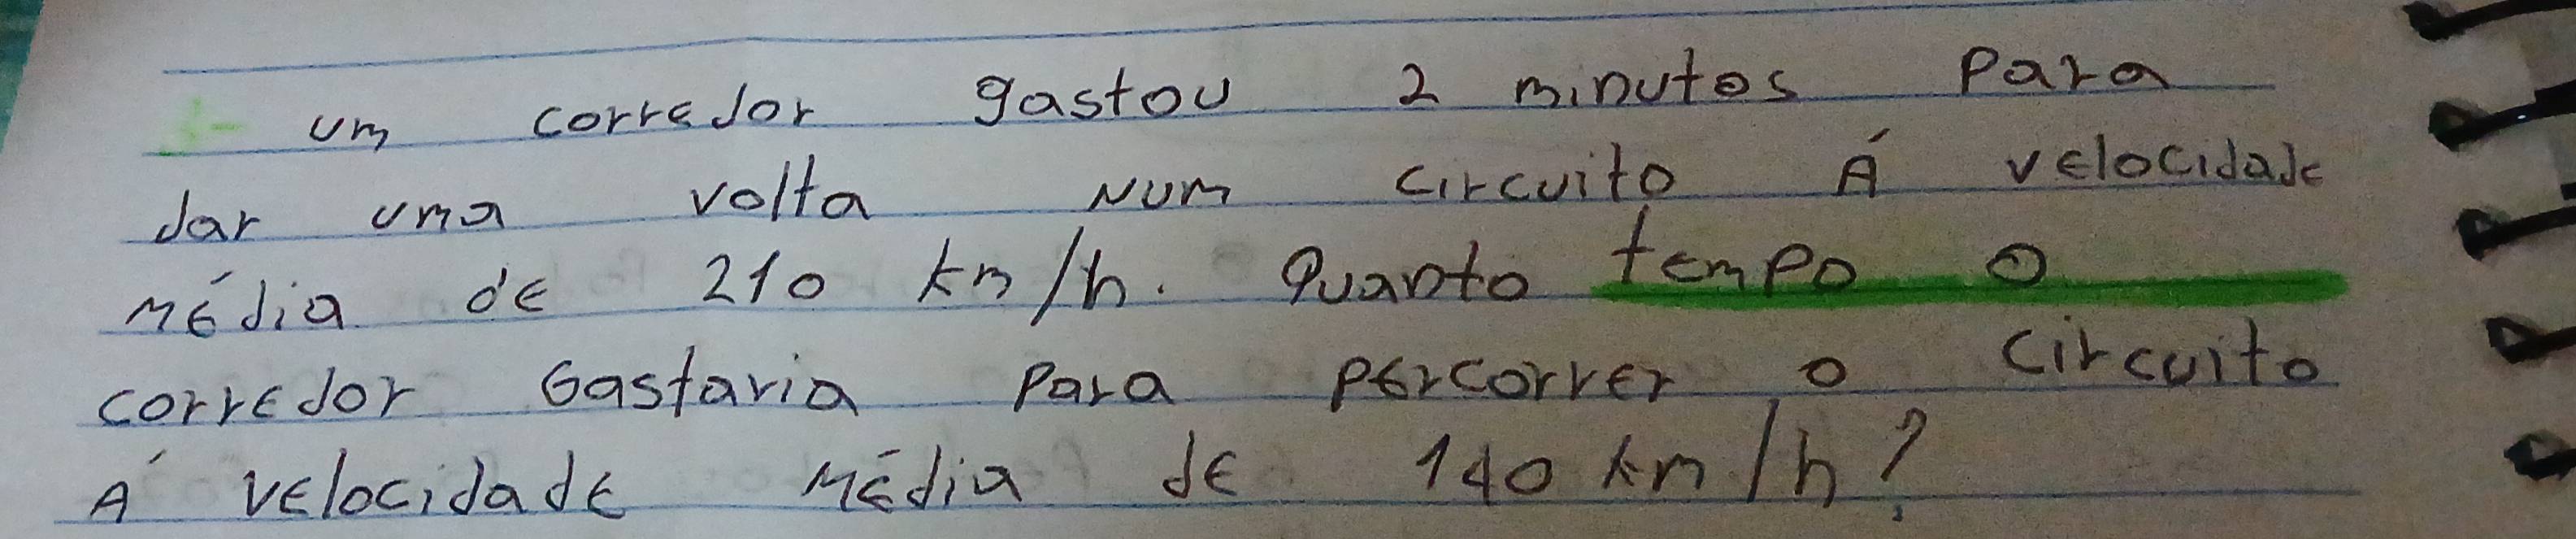 1- um corredor gastou 2 minutos para
dar uma volta num circuito Á velocidade
média de 210 km/h. Quanto tempo o
corredor Gastaria para percorrer o circuito
Á velocidade média de 140 km/h?